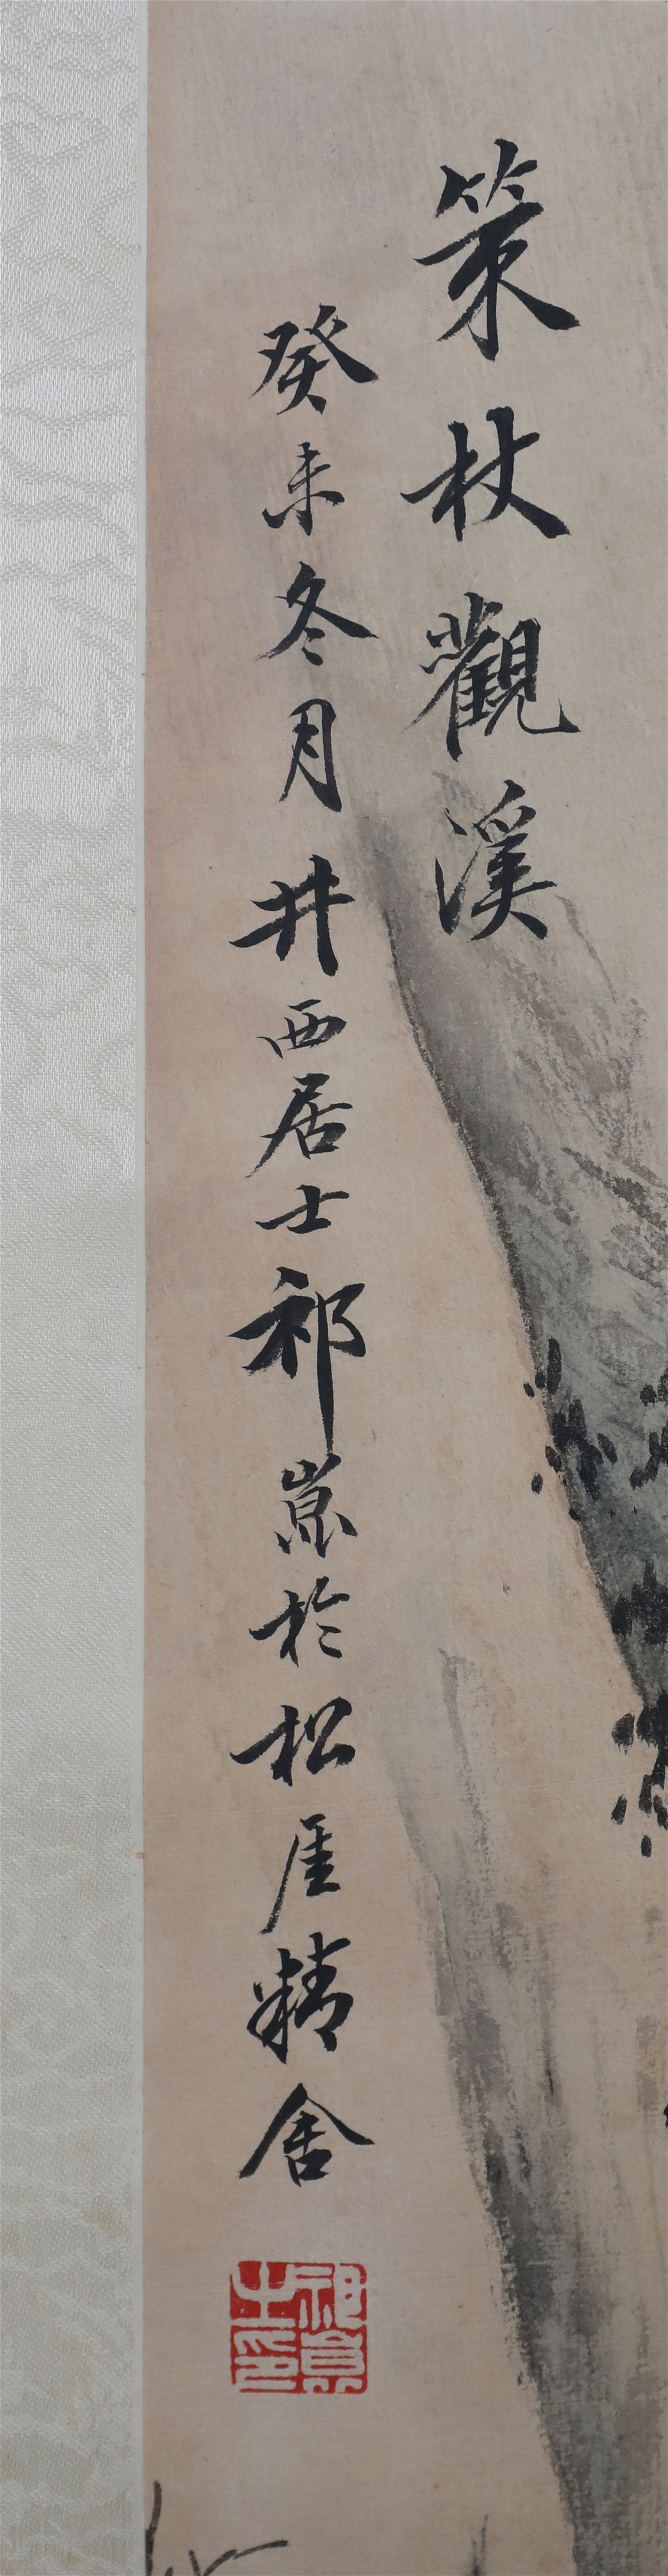 策杖觀溪
癸未冬月井西居士祁崑於松厓精舍
祁崑之印